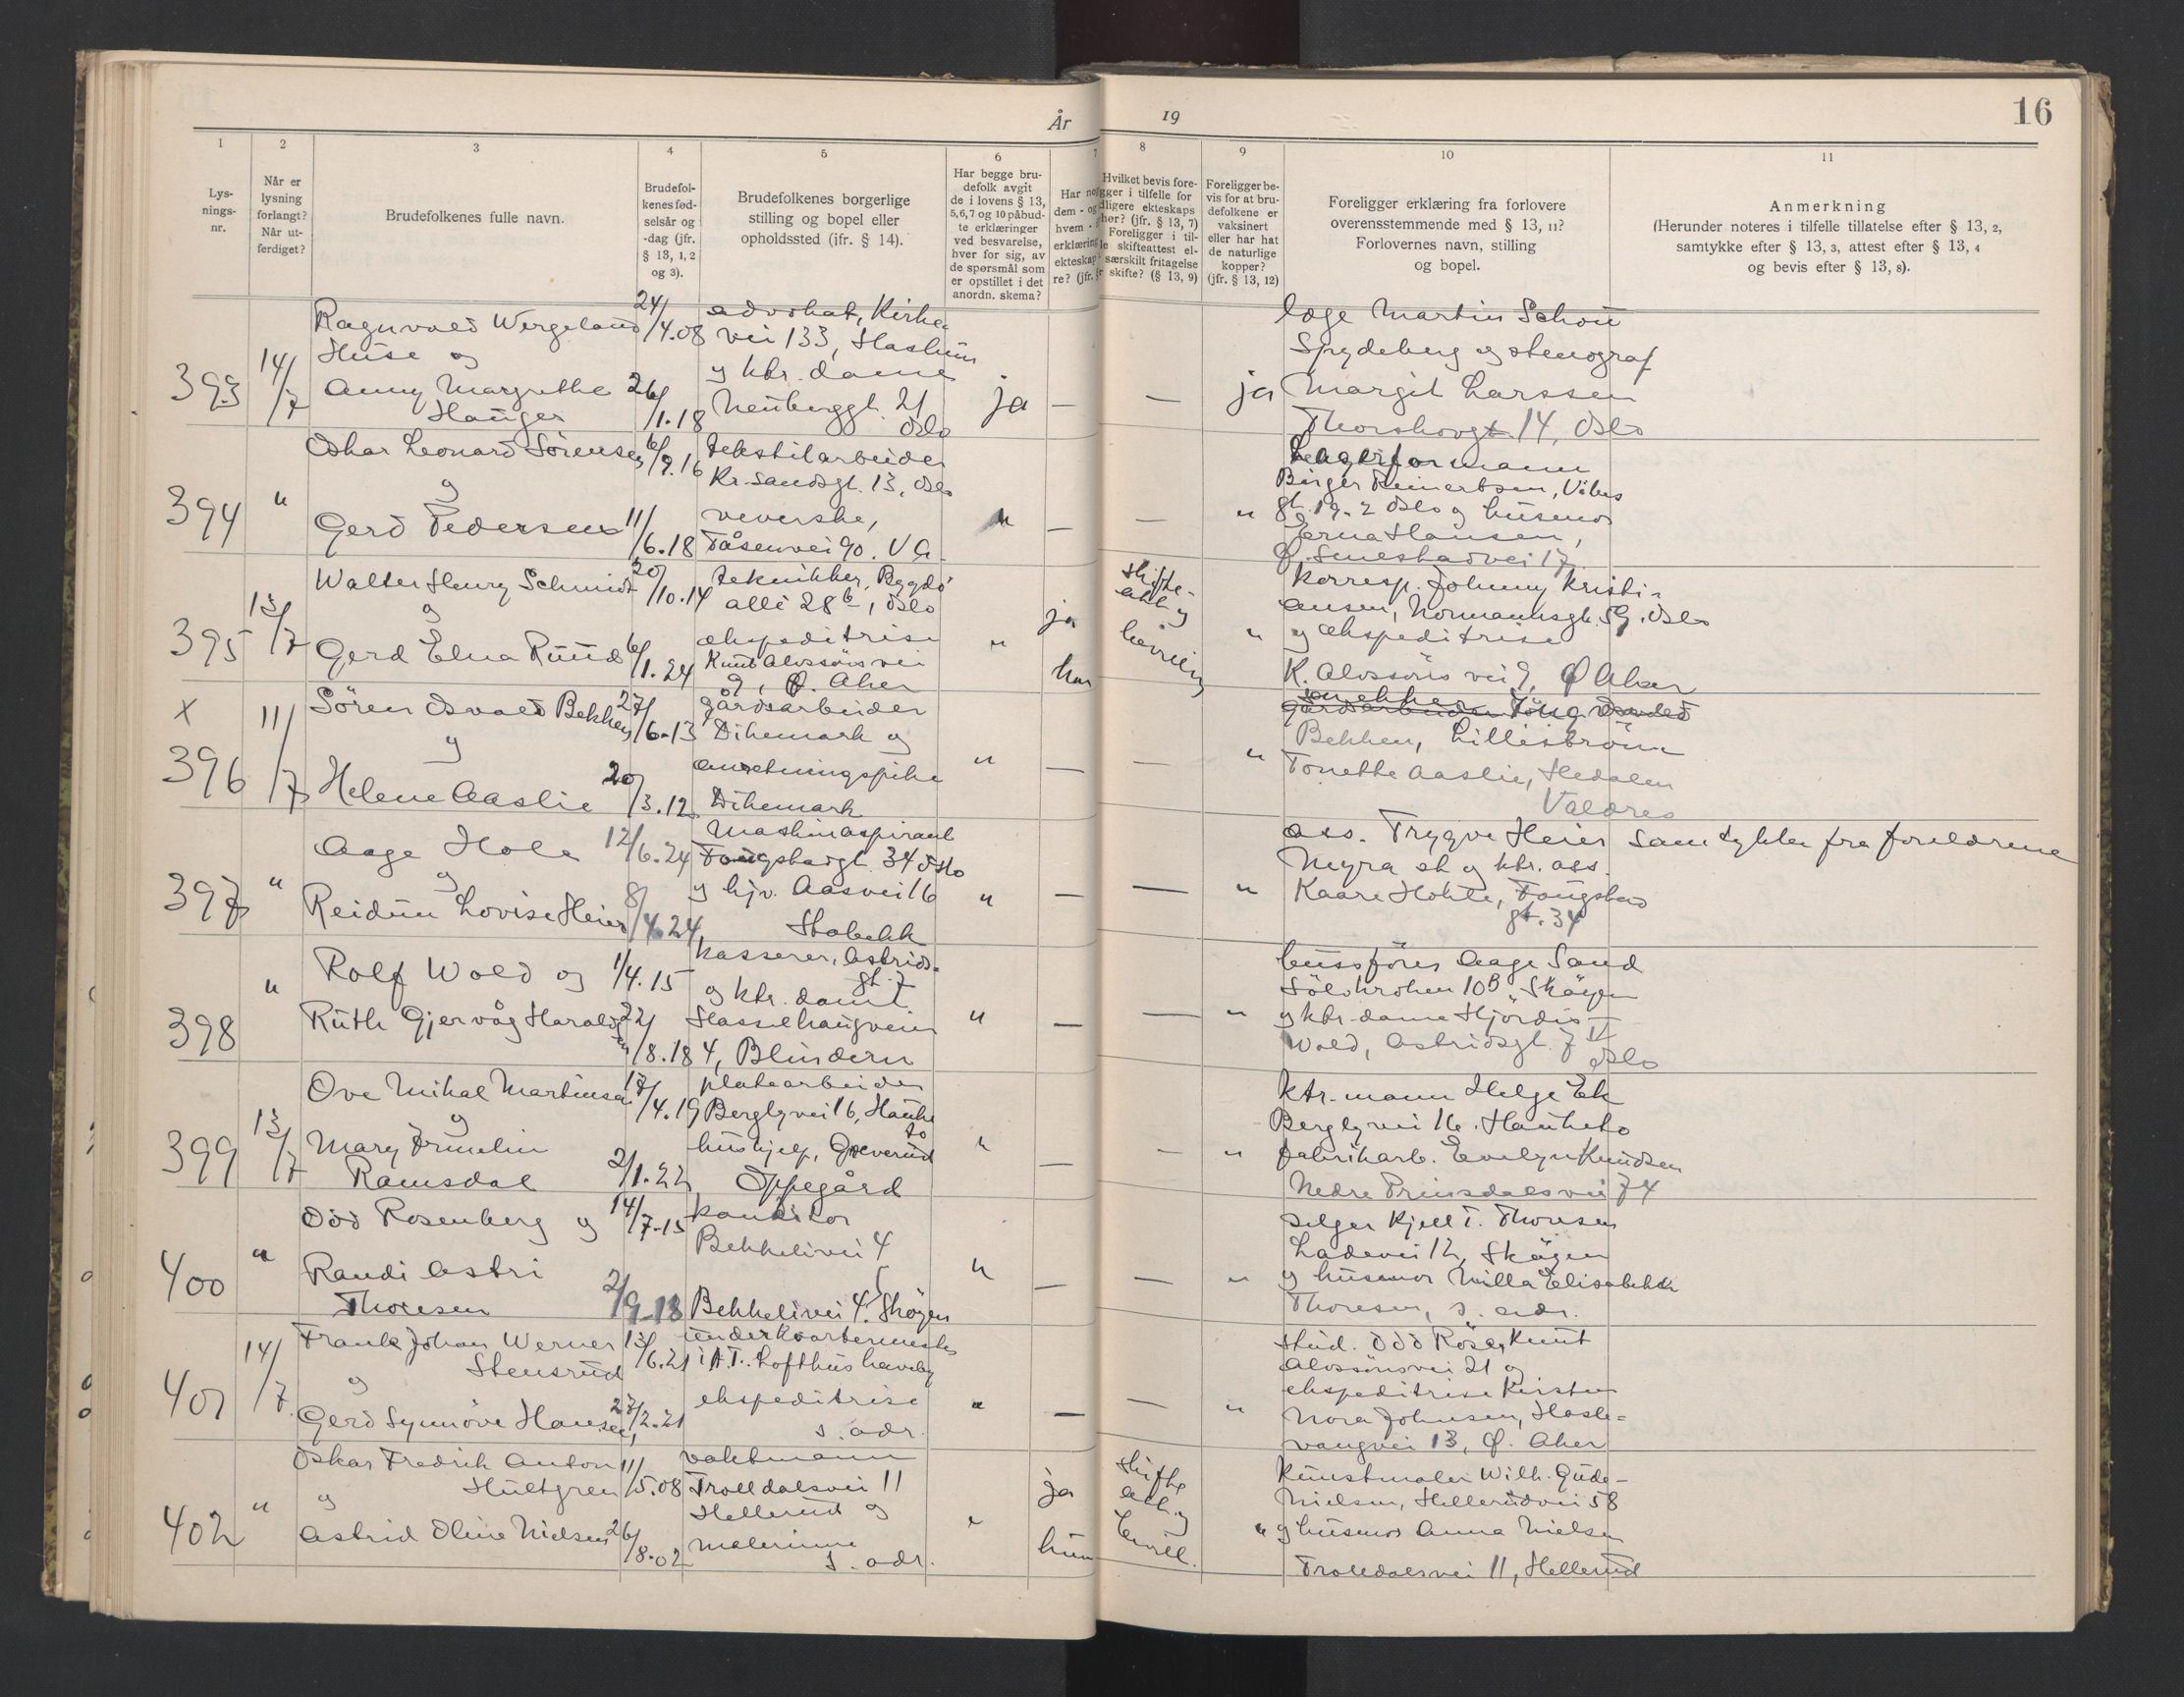 År
19
16
1
2
3
4
5
6
7
8
9
10
11
Lys-
nings-
nr.
Når er
lysning
forlangt?
Når ut-
ferdiget?
Brudefolkenes fulle navn.
Brudefol-
kenes fød-
selsår og
-dag (jfr.
§ 13, 1, 2
og 3).
Brudefolkenes borgerlige
stilling og bopel eller
opholdssted (ifr. § 14).
Har begge bru-
defolk avgit
de i lovens § 13,
5, 6, 7 og 10 påbud-
te erklæringer
ved besvarelse,
hver for sig, av
de spørsmål som
er opstillet i det
anordn. skema?
Har no
dem - og
hvem -
erklæring
ekteskap
re? (jfr.
Hvilket bevis fore-
gger i tilfelle for
dligere ekteskaps
her? (jfr. § 13, 7)
Foreligger i til-
le skifteattest el-
særskilt fritagelse
r skifte? (§ 13, 9)
Foreligger be-
vis for at bru-
defolkene er
vaksinert
eller har hat
de naturlige
kopper?
(jfr. § 13, 12)
Foreligger erklæring fra forlovere
overensstemmende med § 13, 11?
Forlovernes navn, stilling
og bopel.
Anmerkning
(Herunder noteres i tilfelle tillatelse efter § 13, 2,
samtykke efter § 13, 3, attest efter § 13, 4
og bevis efter § 13, 8).
393
14/7
Ragnvald Wergeland
Huse og
Anny Margrethe
Hauger
24/4.08
26/1.18
advokat, Kirke
vei 133, Haslum
og ktr. dame
Neuberggt. 21
Oslo
ja
—
—
ja
læge Martin Schou
Spydeberg og stenograf
Margit Larssen
Thorshovgt. 14, Oslo
394
"
Oskar Leonard Sörensen
og
Gerd Pedersen
6/9.16
11/6.18
tekstilarbeider
Kr.sandsgt. 13, Oslo
veverske,
Tåsenvei 90. V A.
"
—
—
"
Lagerformann
Birger Reinertsen, Vibes
gt. 19.2 Oslo og husmor
Erna Hansen,
Ø. Smestadvei 17
395
13/7
Walter Henry Schmidt
og
Gerd Elna Ruud
20/10.14
6/1.24
tekniker, Bygdö
allé 28b, Oslo
ekspeditrise
Knut Alvssöns vei
9, Ø. Aker
"
ja
han
skifte-
att. og
bevilling
"
korresp. Johnny Kristi-
ansen, Normannsgt. 59, Oslo
og ekspeditrise
K. Alvssöns vei 9, Ø Aker
x
396
11/7
Sören Osvald Bekken
og
Helene Aaslie
27/6-13
20/3.12
gårdsarbeider
Dikemark og
anretningspike
Dikemark
"
—
—
"
Bekken, Lilleström
Tonette Aaslie, Hedalen
Valdres
397
"
Aage Hole
og
Reidun Lovise Heier
12/6.24
8/4.24
Maskinaspirant
Fougstadgt. 34 Oslo
og hjv. Aasvei 16
Stabekk
"
—
—
"
ass. Trygve Heier
Myra st. og ktr. ass.
Kaare Holte, Fougstad
gt. 34
Samtykke fra foreldrene
398
"
Rolf Wold og
Ruth Gjervåg Harald
sen
1/4.15
22/8.18
kasserer, Astrids-
gt. 7
og ktr. dame
Hasselhaugveien
4, Blindern
"
—
—
"
bussförer Aage Sand
Sölvkroken 10B, Sköyen
og ktr. dame Hjördis
Wold, Astridsgt. 7 II
Oslo
399
13/7
Ove Mikal Martinsen
og
Mary Irmelin
Ramsdal
17/4.19
2/1.22
platearbeider
Berglyvei 16, Hauke
to
hushjelp, Greverud
Oppegård
"
—
—
"
ktr. mann Helge Ek
Berglyvei 16. Hauketo
fabrikarb. Evelyn Knudsen
Nedre Prinsdalsvei 74
400
"
Odd Rosenberg og
Randi Astri
Thoresen
14/7-15
2/9-18
konditor
Bekkelivei 4
Bekkelivei 4. Sköyen
"
—
—
"
selger Kjell T. Thoresen
Ladevei 12, Sköyen
og husmor Milla Elisabeth
Thoresen, s. adr.
401
14/7
Frank Johan Werner
Stensrud
og
Gerd Synnöve Hansen
13/6.21
27/2.21
underkvartermester
i A.T. Lofthus haveby
ekspeditrise
s. adr.
"
—
—
"
stud. Odd Röser Knut
Alvssönsvei 21 og
ekspeditrise Kirsten
Nora Johnsen, Hasle-
vangvei 13, Ø. Aker
402
"
Oskar Fredrik Anton
Hultgren
og
Astrid Oline Nielsen
11/5.08
26/8.02
vaktmann
Trolldalsvei 11
Hellerud og
malerinne
s. adr.
"
ja
hun
skifte
att. og
bevill.
"
Kunstmaler Wilh. Gude-
Nielsen, Hellerudvei 58
og husmor Anna Nielsen
Trolldalsvei 11, Hellerud